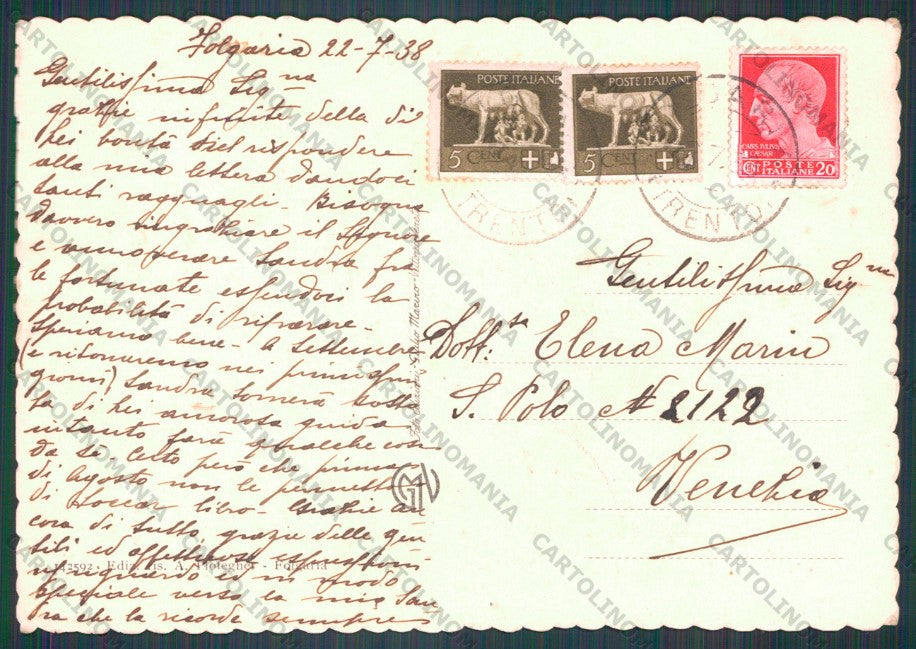 Folgaria 22-7-38
Gentilissima Sig.na
grazie infinite della di
Lei bontà nel rispondere
alla mia lettera dandoci
tanti ragguagli. Bisogna
davvero ringraziare il Signore
e annoverare Sandra fra
le fortunate essendoci la
probabilità di riparare.
Speriamo bene. A settembre
(e ritorneremo nei primissimi
giorni) Sandra tornerà sotto
la di Lei amorosa guida
intanto farà qualche cosa
da sé. Certo però che prima
di Agosto non le permetto
di toccar libro. Grazie an
cora di tutto, grazie delle gen
tili ed affettuose espressioni
a riguardo ed in modo
speciale verso la mia San
dra che la ricorda sempre
POSTE ITALIANE
5 CENT
POSTE ITALIANE
5 CENT
CAIUS IULIUS
CAESAR
CENT POSTE ITALIANE 20
TRENTINO
TRENTINO
Gentilissima Sig.na
Dott.ssa Elena Marin
S. Polo N 2122
Venezia
GM
142592 - Ediz. ris. A. Plotegher - Folgaria
CARTOLINOMANIA